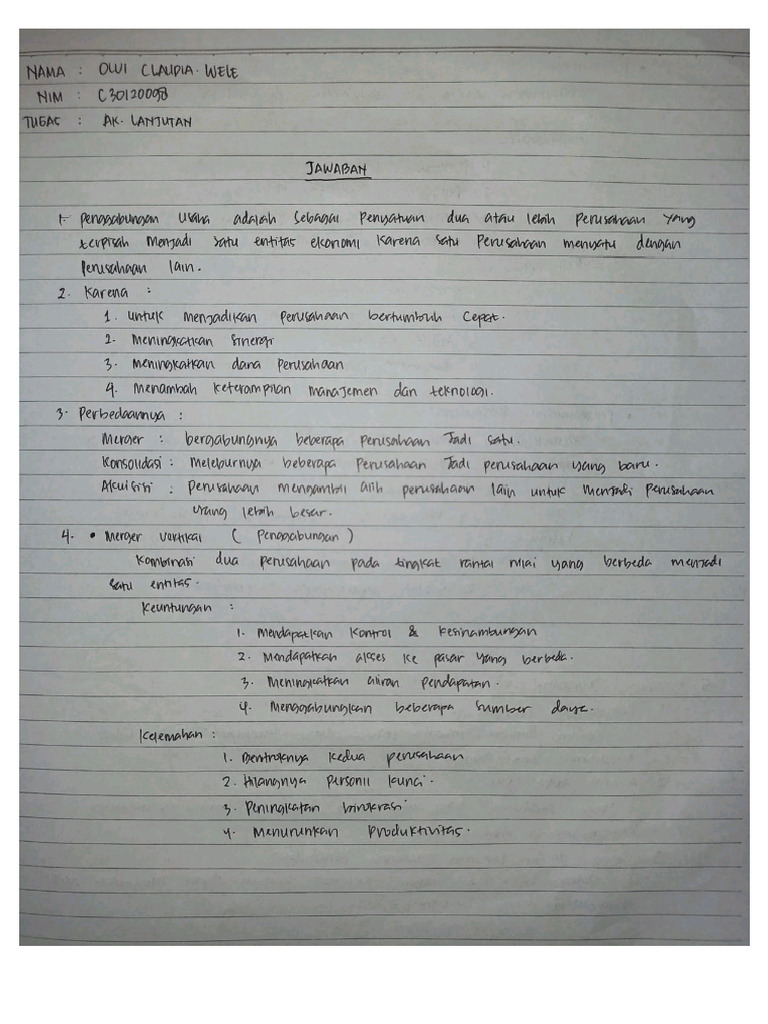 NAMA : OLVI CLAUDIA. WELE
NIM : C30120098
TUGAS : AK. LANJUTAN
JAWABAN
1. Penggabungan usaha adalah sebagai Penyatuan dua atau lebih perusahaan yang
terpisah menjadi satu entitas ekonomi karena satu perusahaan menyatu dengan
perusahaan lain.
2. Karena :
1. untuk menjadikan perusahaan bertumbuh cepat.
2. Meningkatkan sinergi
3. Meningkatkan dana perusahaan
4. Menambah keterampilan manajemen dan teknologi.
3. Perbedaannya :
Merger : bergabungnya beberapa perusahaan Jadi satu.
Konsolidasi : Meleburnya beberapa perusahaan Jadi perusahaan yang baru.
Akuisisi : Perusahaan mengambil alih perusahaan lain untuk menjadi perusahaan
yang lebih besar.
4. • Merger vertikal ( Penggabungan )
Kombinasi dua perusahaan pada tingkat rantai nilai yang berbeda menjadi
satu entitas.
Keuntungan :
1. Mendapatkan kontrol & kesinambungan
2. Mendapatkan akses ke pasar yang berbeda.
3. Meningkatkan aliran pendapatan.
4. Menggabungkan beberapa sumber daya.
Kelemahan :
1. Bentroknya kedua perusahaan
2. Hilangnya Personil kunci.
3. Peningkatan birokrasi
4. Menurunkan Produktivitas.